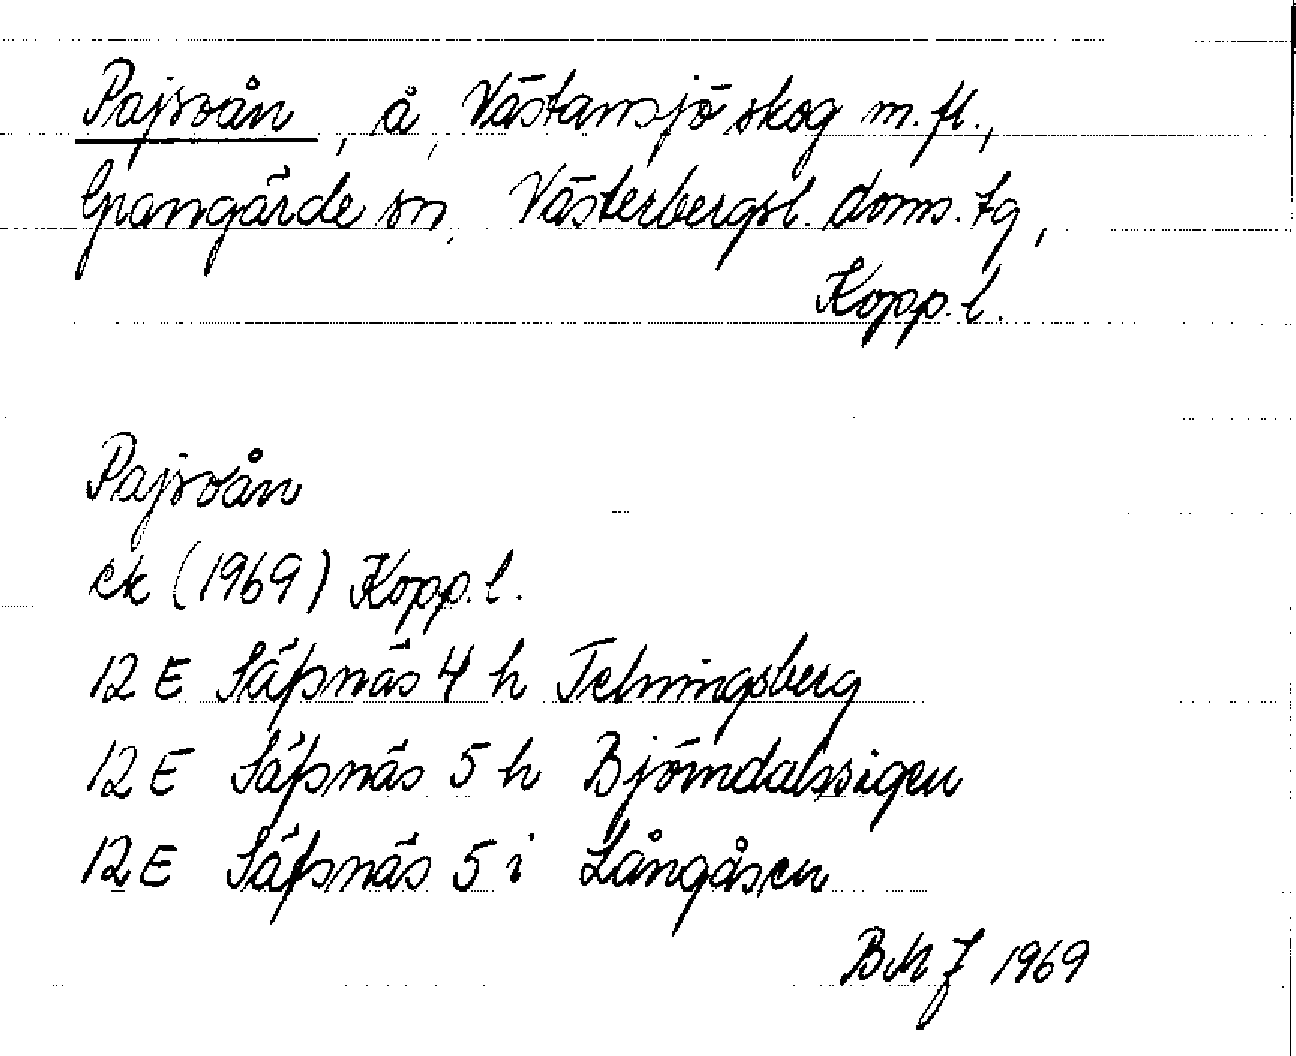 Pajsoån, å, Västansjö skog m.fl.,
Grangärde sn, Västerbergsl. doms. tg,
Kopp.l.
Pajsoån
ek (1969) Kopp.l.
12 E Säfsnäs 4 h Telningsberg
12 E Säfsnäs 5 h Björndalssigen
12 E Säfsnäs 5 i Långåsen
BMJ 1969